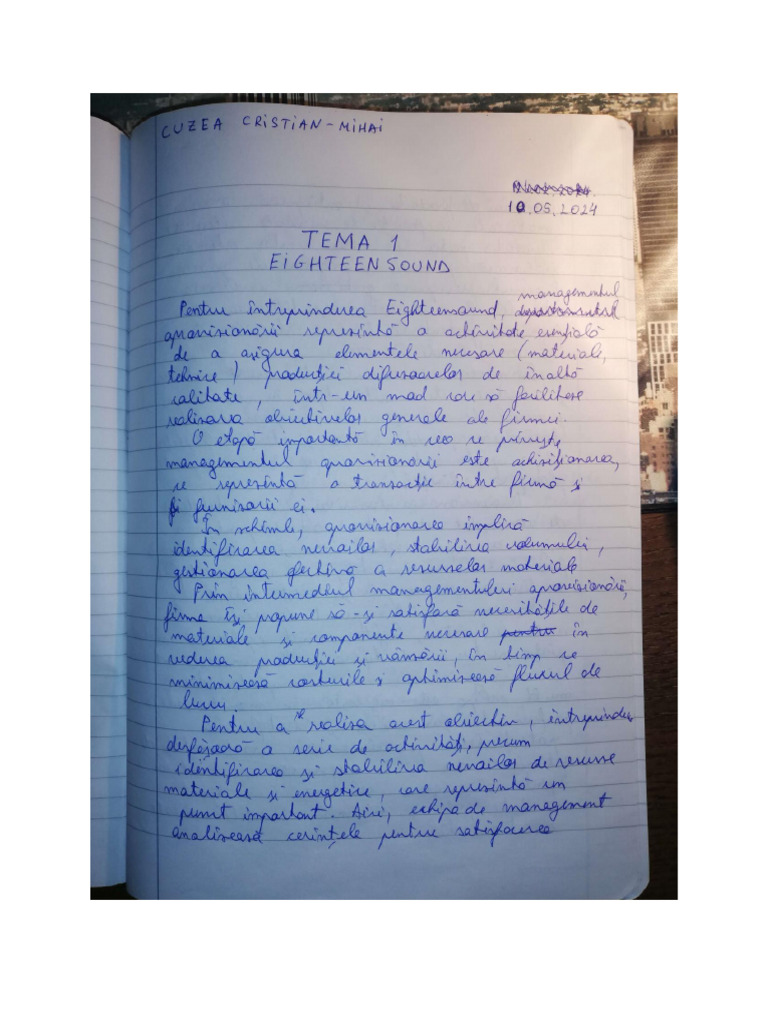 CUZEA CRISTIAN-MIHAI
10.05.2024
TEMA 1
EIGHTEENSOUND
managementul
Pentru întreprinderea Eighteensound,
aprovizionării reprezintă o activitate esențială
de a asigura elementele necesare (materiale,
tehnice) producției difuzoarelor de înaltă
calitate, într-un mod care să faciliteze
realizarea obiectivelor generale ale firmei.
O etapă importantă în ceea ce privește
managementul aprovizionării este achiziționarea,
ce reprezintă o tranzacție între firmă și
furnizorii ei.
În schimb, aprovizionarea implică
identificarea nevoilor, stabilirea volumului,
gestionarea efectivă a resurselor materiale
Prin intermediul managementului aprovizionării,
firma își propune să-și satisfacă necesitățile de
materiale și componente necesare pentru în
vederea producției și vânzării, în timp ce
minimizează costurile și optimizează fluxul de
lucru.
Pentru a realiza acest obiectiv, întreprinderea
desfășoară o serie de activități, precum
identificarea și stabilirea nevoilor de resurse
materiale și energetice, care reprezintă un
punct important. Aici, echipa de management
analizează cerințele pentru satisfacerea